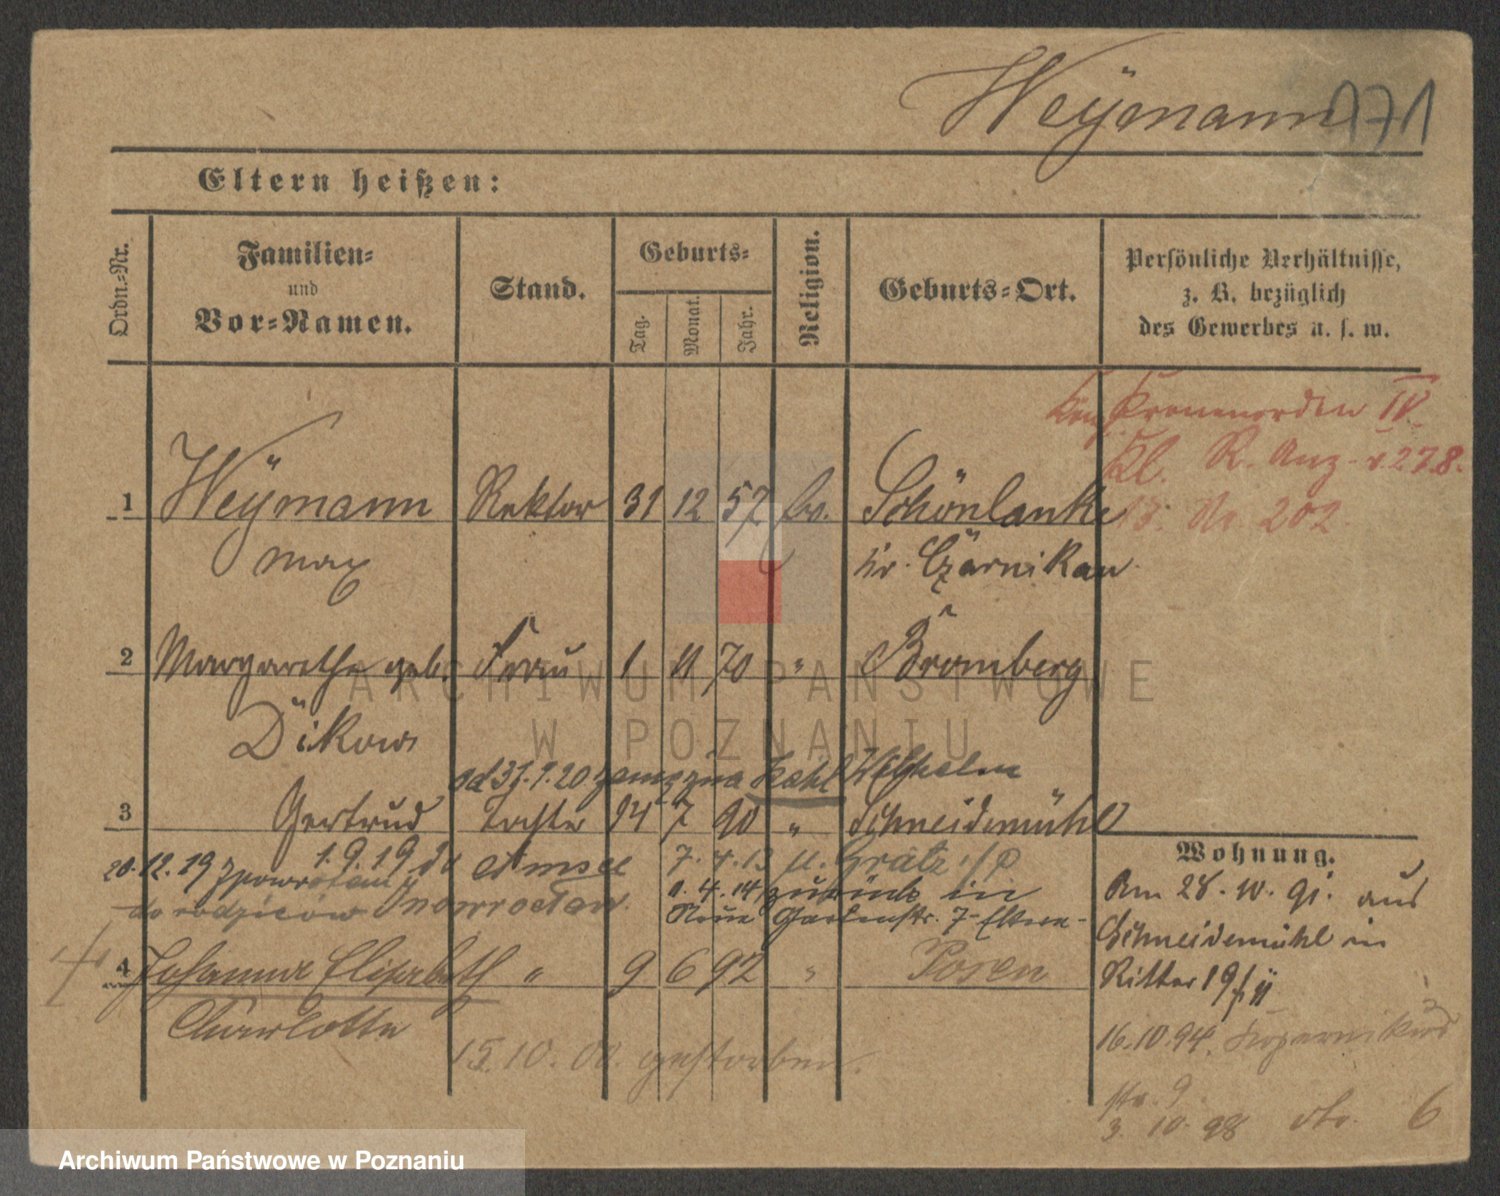 Weÿmann 171
Eltern heißen:
Ordn.-Nr.
Familien- und Vor-Namen.
Stand.
Geburts-
Tag. Monat. Jahr.
Religion.
Geburts-Ort.
Persönliche Verhältnisse,
z. B. bezüglich
des Gewerbes u. s. w.
Kronenorden IV
Kl. R. Anz. v 27.8.
13. Nr 202.
1 Weÿmann Rektor 31 12 57 ev. Schönlanke
Max Kr. Czarnikau
2 Margarethe geb. Frau 1 11 70 " Bromberg
Dikow
od 31.1.20 zamężna Kahl Wilhelm
3 Gertrud Tochter 14 7 90 " Schneidemühl
1.9.19 7.4.13 Grätz
20.12.19 zpowrotem 1.4.14 zurück in
do rodziców Inowrocław. Neue Gartenstr. 7 Eltern
4 Johanna Elisabeth " 9 6 92 " Posen
Charlotte
15.10.00. gestorben.
Wohnung.
Am 28.10.91. aus
Schneidemühl in
Ritter 19
16.10.94. Kopernikus
str. 9
3. 10. 98 dto. 6
ARCHIWUM PAŃSTWOWE
W POZNANIU
Archiwum Państwowe w Poznaniu